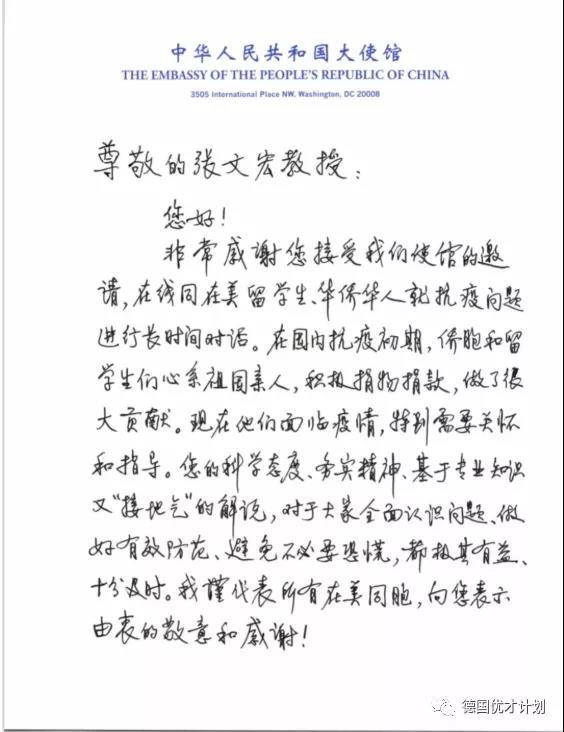 中华人民共和国大使馆
THE EMBASSY OF THE PEOPLE'S REPUBLIC OF CHINA
3505 International Place NW, Washington, DC 20008
尊敬的张文宏教授：
您好！
非常感谢您接受我们使馆的邀
请，在线同在美留学生、华侨华人就抗疫问题
进行长时间对话。在国内抗疫初期，侨胞和留
学生们心系祖国亲人，积极捐物捐款，做了很
大贡献。现在他们面临疫情，特别需要关怀
和指导。您的科学态度、务实精神、基于专业知识
又“接地气”的解说，对于大家全面认识问题、做
好有效防范、避免不必要恐慌，都极其有益、
十分及时。我谨代表所有在美同胞，向您表示
由衷的敬意和感谢！
德国优才计划